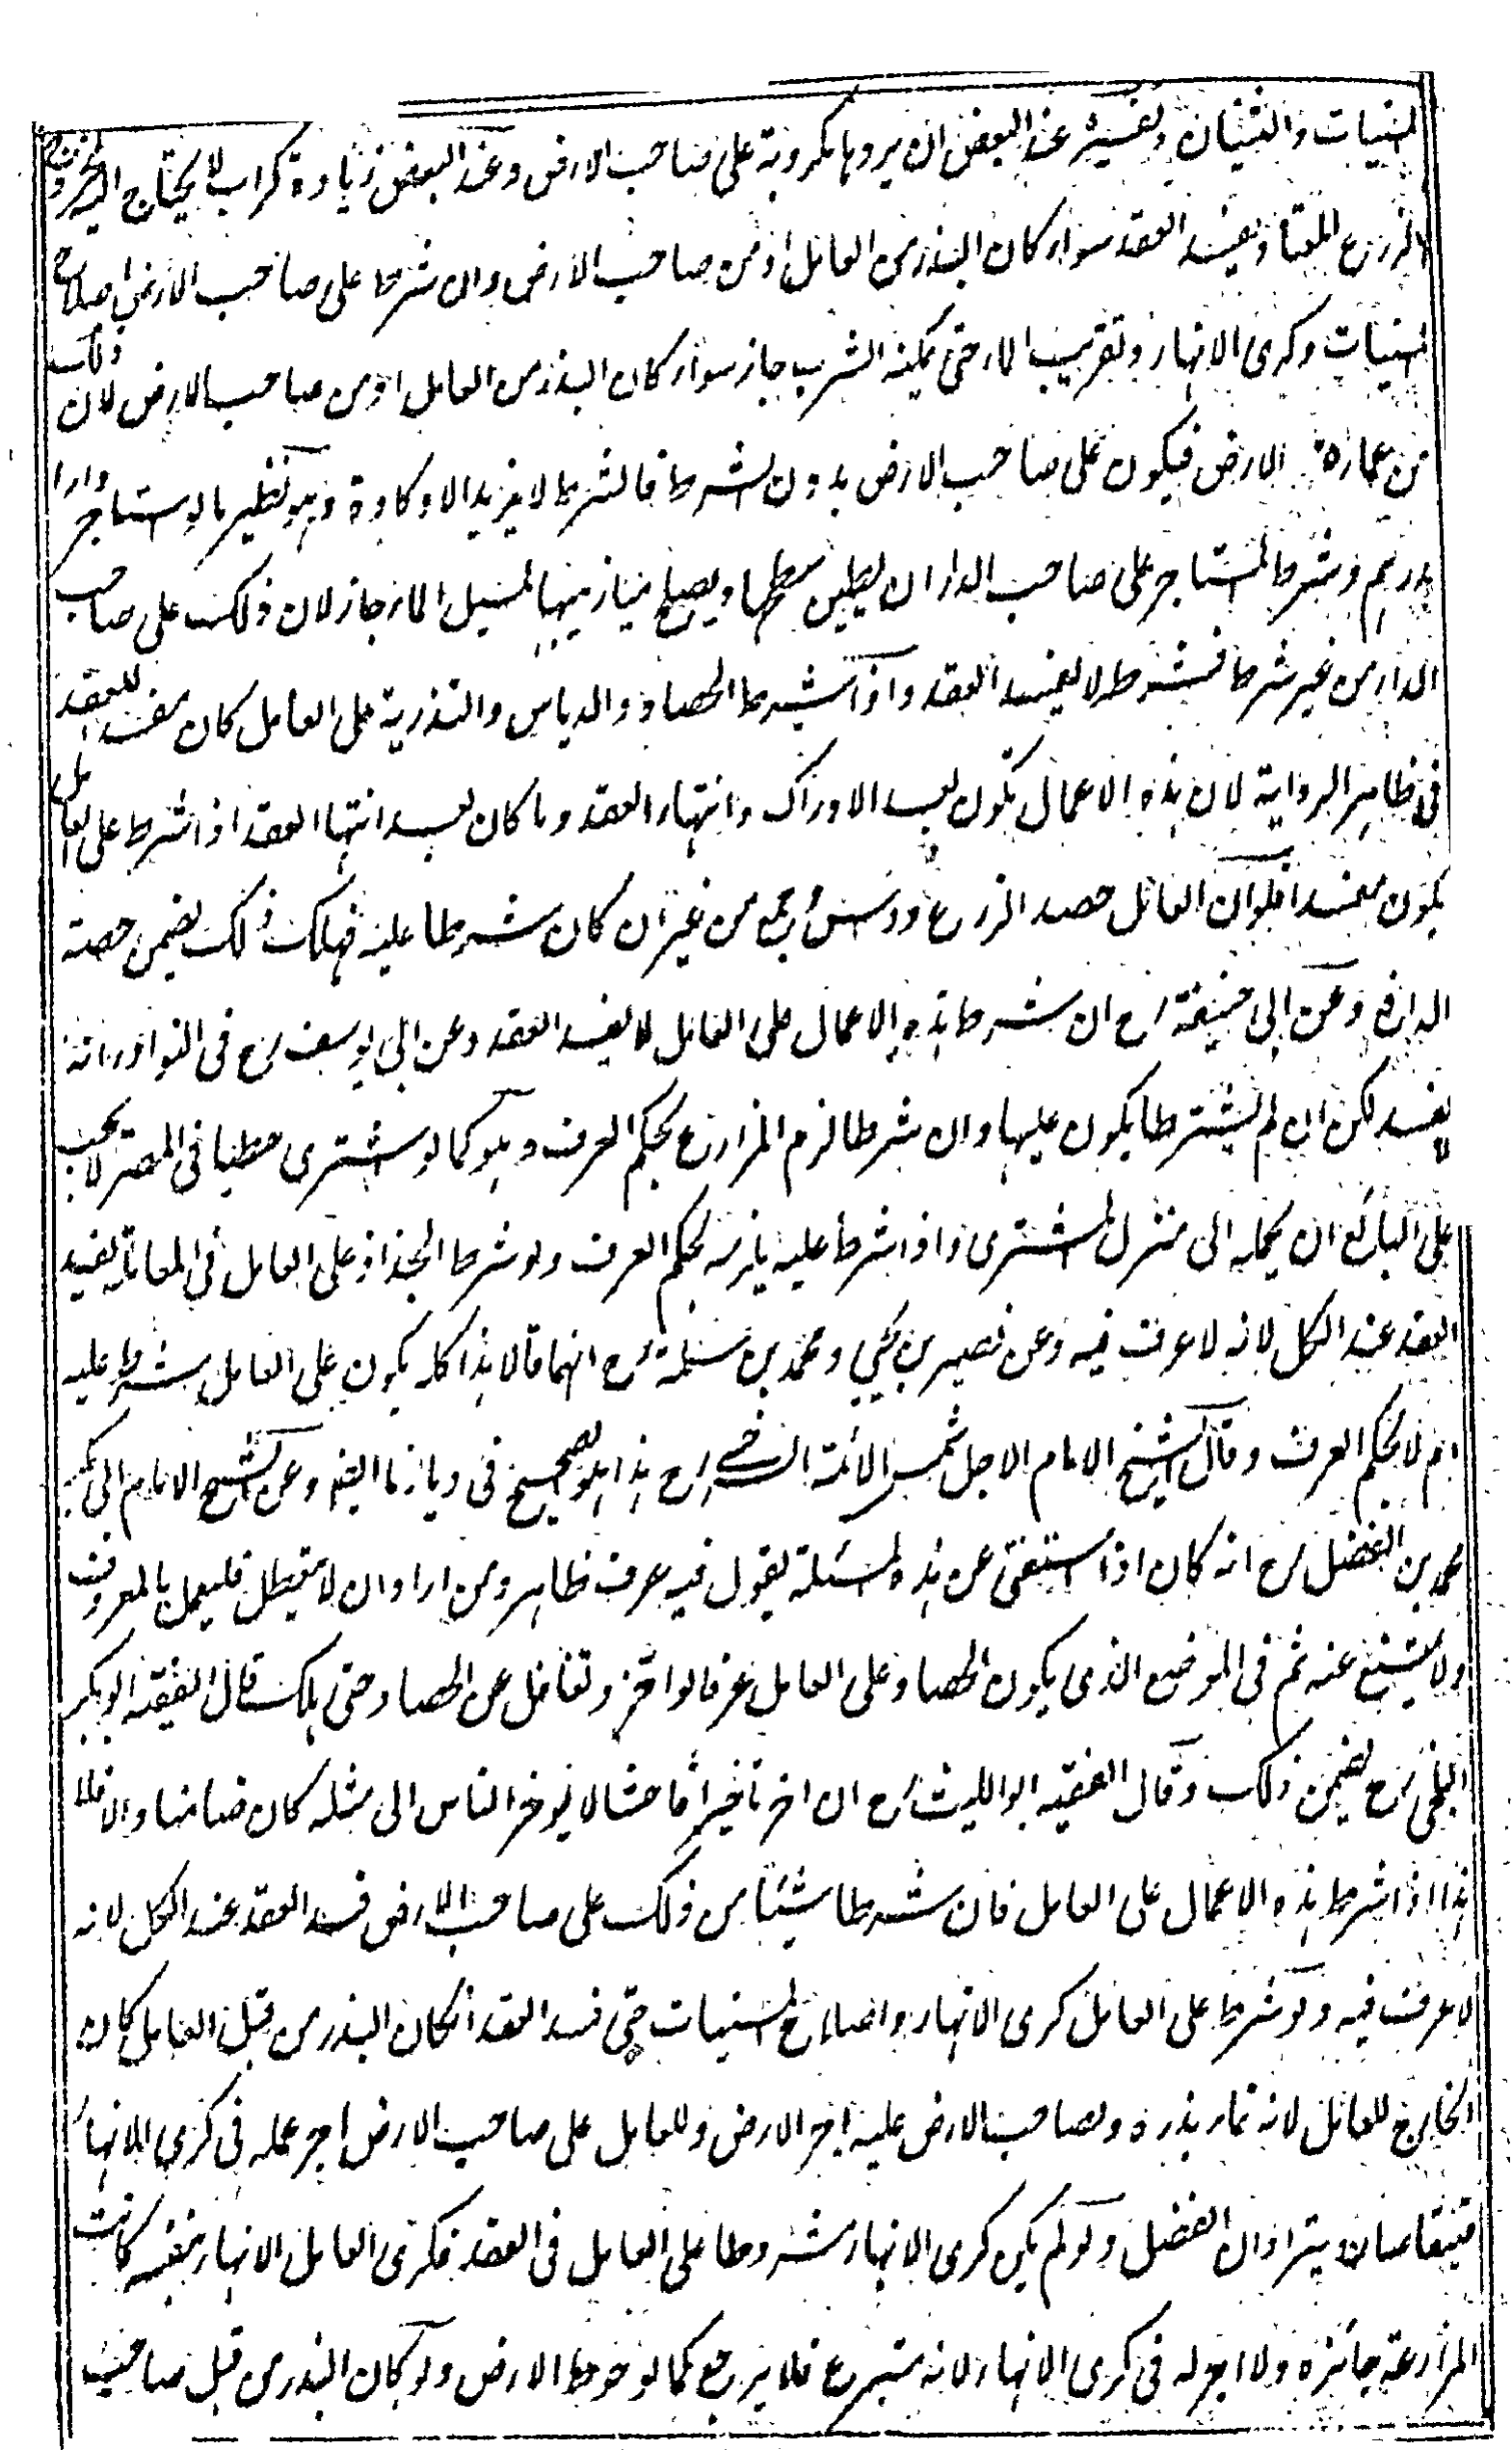 المسنيات والثنيان وتفسيره عند البعض ان يردها مكروبة على صاحب الارض وعند البعض زيادة كراب لا يحتاج اليه لخروج
الزرع المعتاد ويفسد العقد سواء كان البذر من العامل او من صاحب الارض وان شرط على صاحب الارض اصلاح
المسنيات وكرى الانهار وتقريب الماء حتى يمكنه الشرب جاز سواء كان البذر من العامل او من صاحب الارض لان ذلك
من عمارة الارض فيكون على صاحب الارض بدون الشرط فالشرط لا يزيد الا وكادة وهو نظير ما لو استاجر دارا
بدرهم وشرط المستاجر على صاحب الدار ان يطين سطحها ويصلح ميازيبها لمسيل الماء جاز لان ذلك على صاحب
الدار من غير شرط فبشرط لا يفسد العقد واذا شرط الحصاد والدياس والتذرية على العامل كان مفسدا للعقد
فى ظاهر الرواية لان هذه الاعمال تكون بعد الادراك وانتهاء العقد وما كان بعد انتهاء العقد اذا شرط على العامل
يكون مفسدا فلو ان العامل حصد الزرع وداس وجمع من غير ان كان شرطا عليه فهلك ذلك يضمن حصة
الدافع وعن ابى حنيفة رح ان شرط هذه الاعمال على العامل لا يفسد العقد وعن ابى يوسف رح فى النوادر انه
لا يفسد لكن ان لم يشترطا يكون عليهما وان شرطا لزم المزارع بحكم العرف وهو كما لو اشترى حطبا فى المصر لا يجب
على البائع ان يحمله الى منزل المشترى واذا شرط عليه يلزمه بحكم العرف ولو شرط الجذاذ على العامل فى المعاملة يفسد
العقد عند الكل لانه لا عرف فيه وعن نصير بن يحيى ومحمد بن سلمة رح انهما قالا هذا كله يكون على العامل شرط عليه
ام لا بحكم العرف وقال الشيخ الامام الاجل شمس الائمة السرخسى رح هذا هو الصحيح فى ديارنا ايضا وعن الشيخ الامام ابى بكر
محمد بن الفضل رح انه كان اذا استفتى عن هذه المسئلة يقول فيه عرف ظاهر ومن اراد ان لا يتعطل فليعمل بالمعروف
ولا يمتنع عنه ثم فى الموضع الذى يكون الحصاد على العامل عرفا لو اخر وتغافل عن الحصاد حتى هلك قال الفقيه ابو بكر
البلخى رح يضمن ذلك وقال الفقيه ابو الليث رح ان اخر تاخيرا فاحشا لا يوخر الناس الى مثله كان ضامنا والا فلا
هذا اذا شرط هذه الاعمال على العامل فان شرطا شيئا من ذلك على صاحب الارض فسد العقد عند الكل لانه
لا عرف فيه ولو شرط على العامل كرى الانهار واصلاح المسنيات حتى فسد العقد انكان البذر من قبل العامل كان
الخارج للعامل لانه نماء بذره ولصاحب الارض عليه اجر الارض وللعامل على صاحب الارض اجر عمله فى كرى الانهار
فيتقاصان ويترادان الفضل ولو لم يكن كرى الانهار مشروطا على العامل فى العقد فكرى العامل الانهار بنفسه كانت
المزارعة جائزة ولا اجر له فى كرى الانهار لانه متبرع فلا يرجع كما لو حوط الارض ولو كان البذر من قبل صاحب